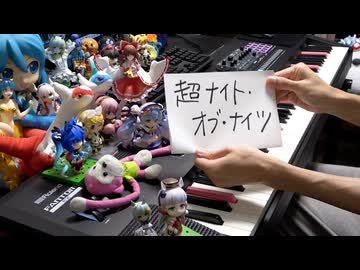 超ナイト・
オブ・ナイツ
Roland
FANTOM